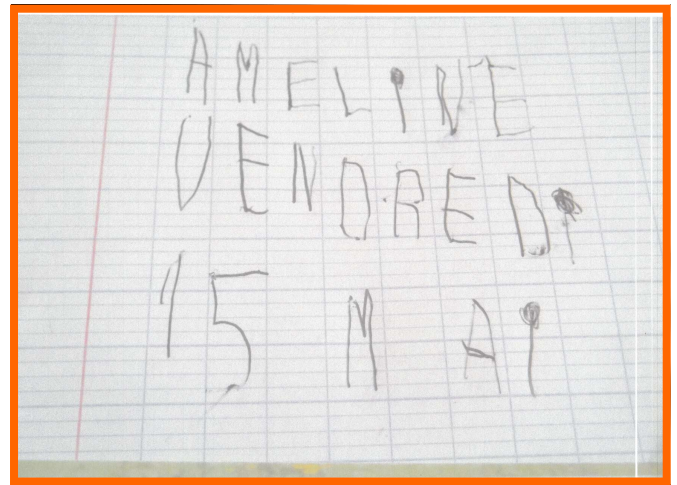 AMELiNE
VENDREDi
15 MAi